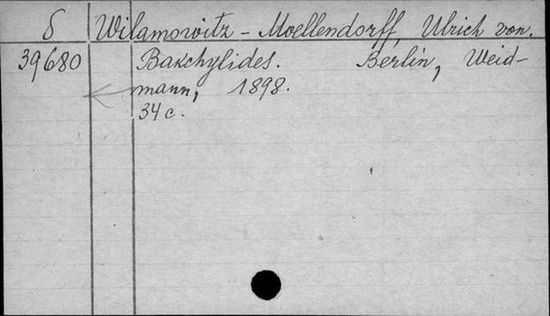 δ Wilamowitz - Moellendorff, Ulrich von.
39680 Bakchylides. Berlin, Weid-
mann, 1898.
34 c.